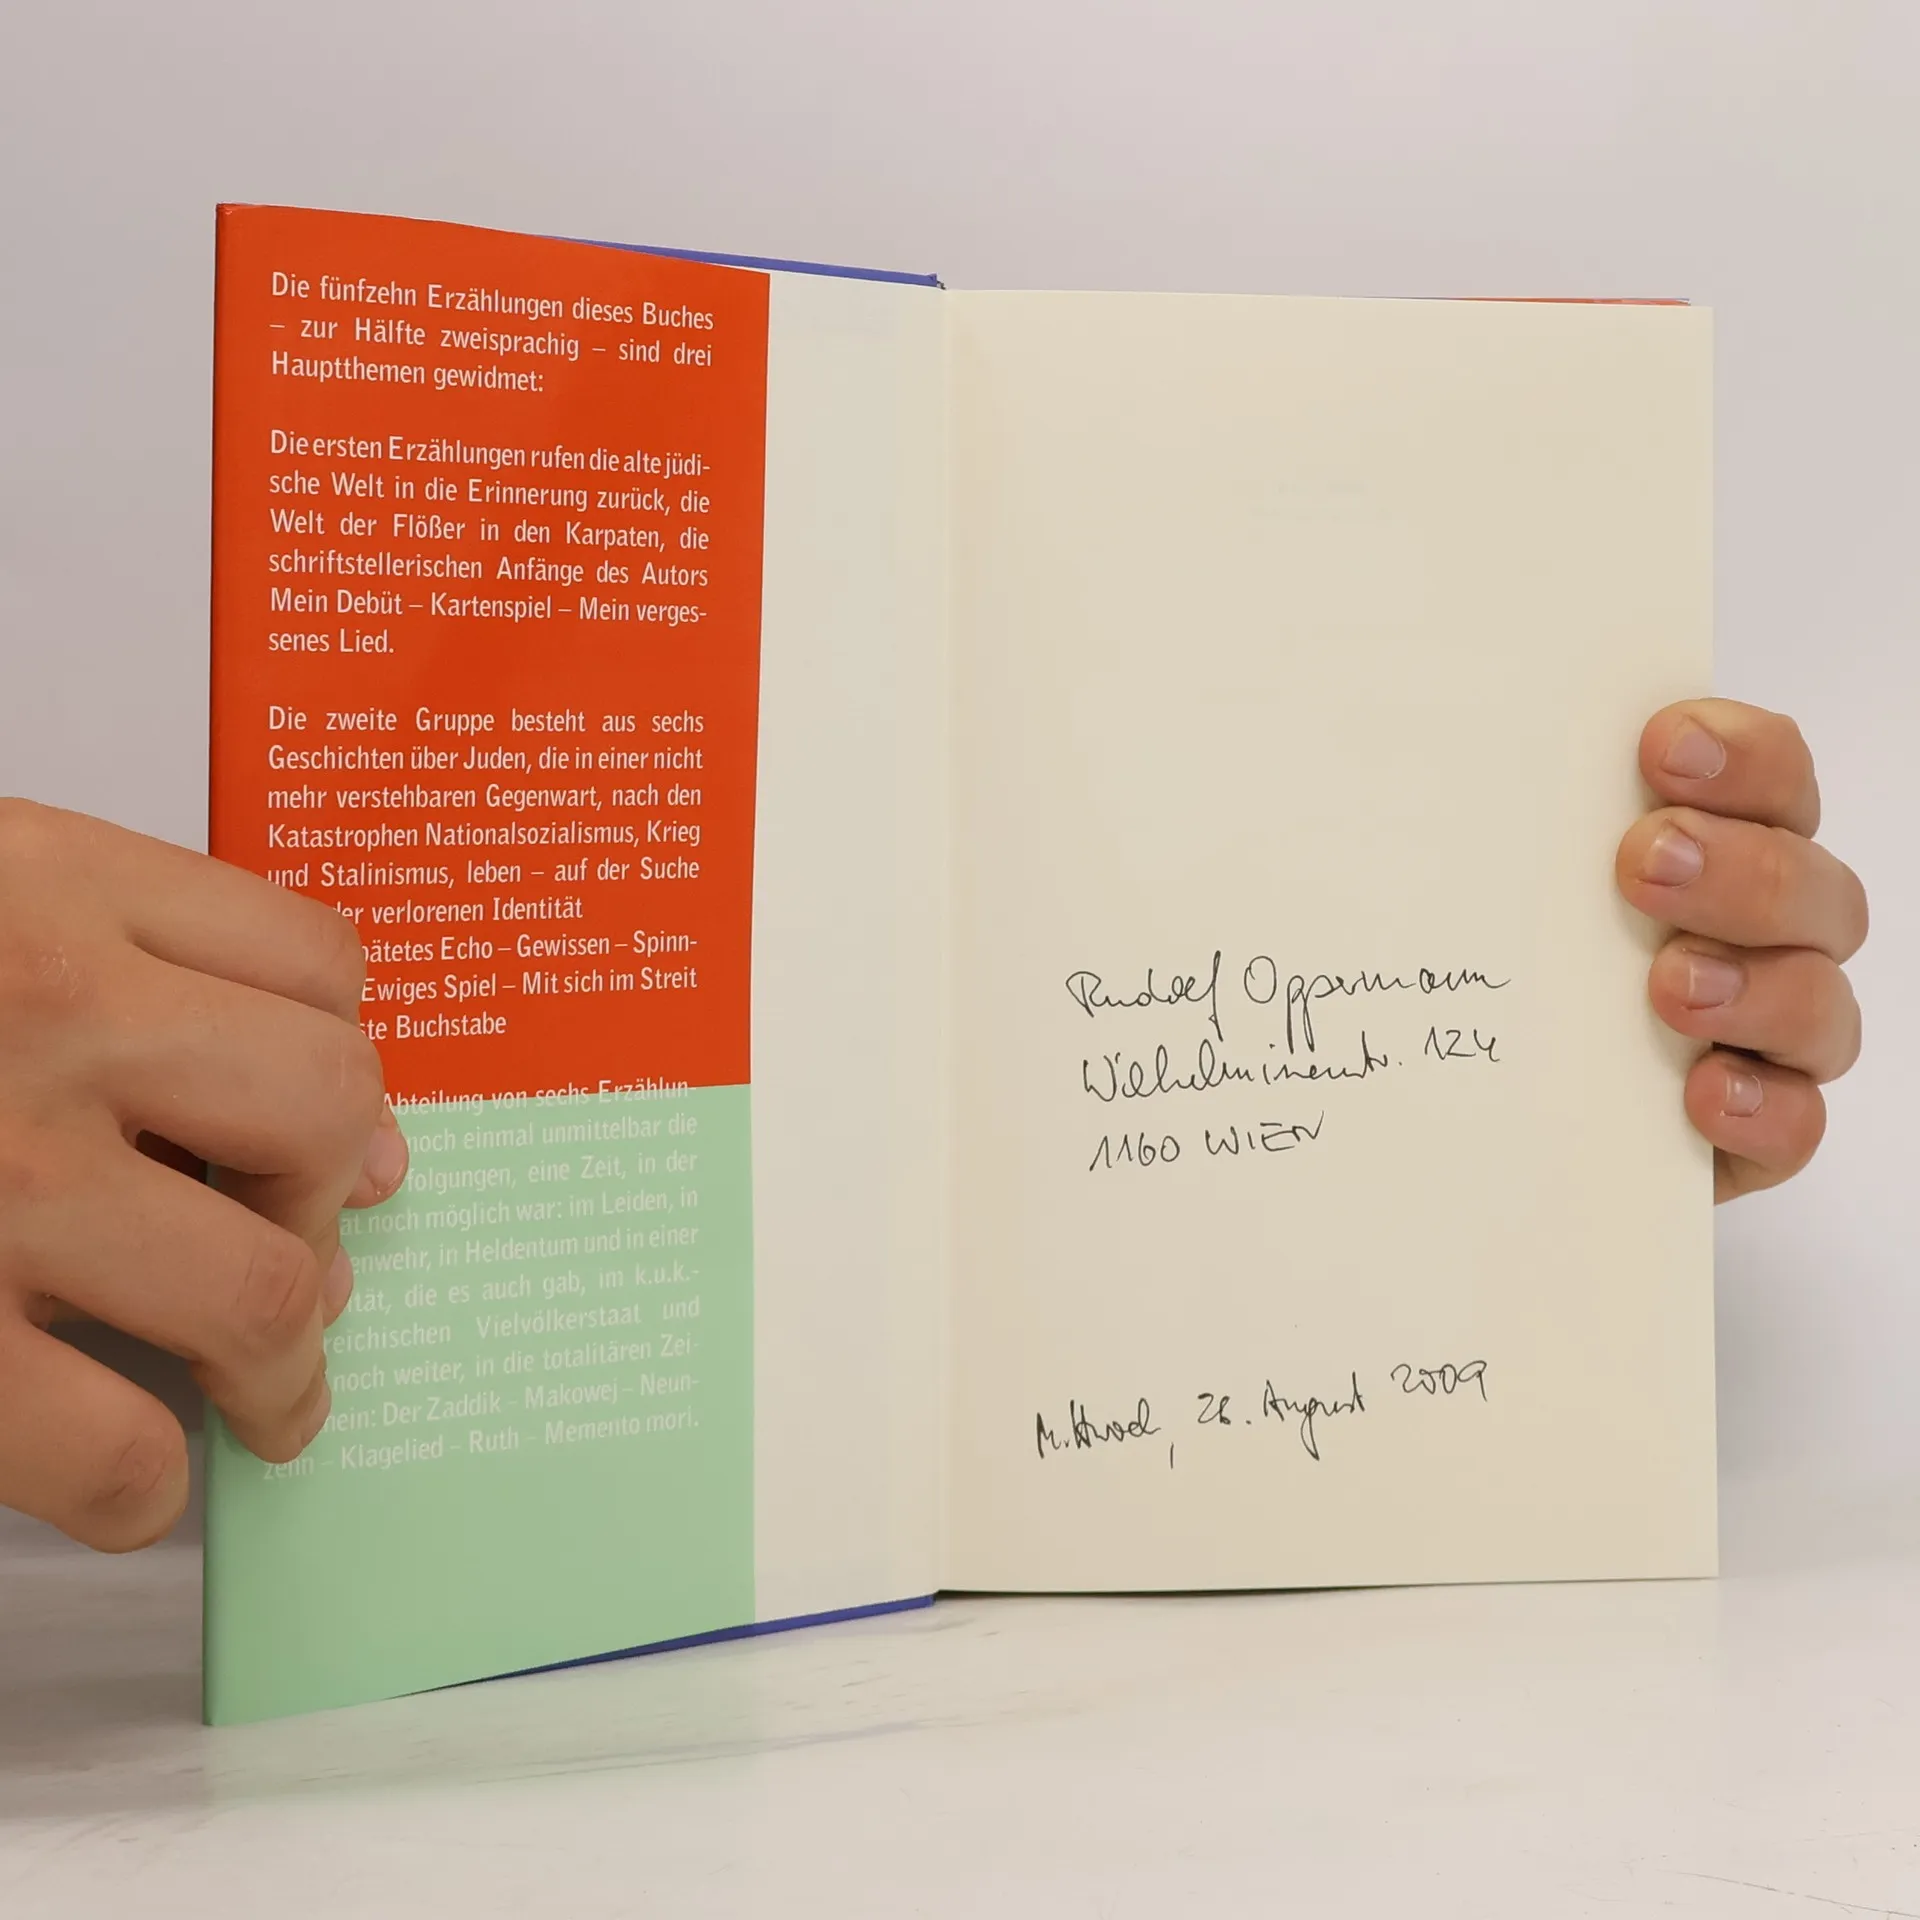 Die fünfzehn Erzählungen dieses Buches
– zur Hälfte zweisprachig – sind drei
Hauptthemen gewidmet:
Die ersten Erzählungen rufen die alte jüdi-
sche Welt in die Erinnerung zurück, die
Welt der Flößer in den Karpaten, die
schriftstellerischen Anfänge des Autors
Mein Debüt – Kartenspiel – Mein verges-
senes Lied.
Die zweite Gruppe besteht aus sechs
Geschichten über Juden, die in einer nicht
mehr verstehbaren Gegenwart, nach den
Katastrophen Nationalsozialismus, Krieg
und Stalinismus, leben – auf der Suche
der verlorenen Identität
pätetes Echo – Gewissen – Spinn-
Ewiges Spiel – Mit sich im Streit
ste Buchstabe
Abteilung von sechs Erzählun-
noch einmal unmittelbar die
folgungen, eine Zeit, in der
ät noch möglich war: im Leiden, in
enwehr, in Heldentum und in einer
ität, die es auch gab, im k.u.k.-
reichischen Vielvölkerstaat und
noch weiter, in die totalitären Zei-
nein: Der Zaddik – Makowej – Neun-
zehn – Klagelied – Ruth – Memento mori.
Rudolf Oppermann
Wilhelminenstr. 124
1160 WIEN
Mittwoch, 26. August 2009